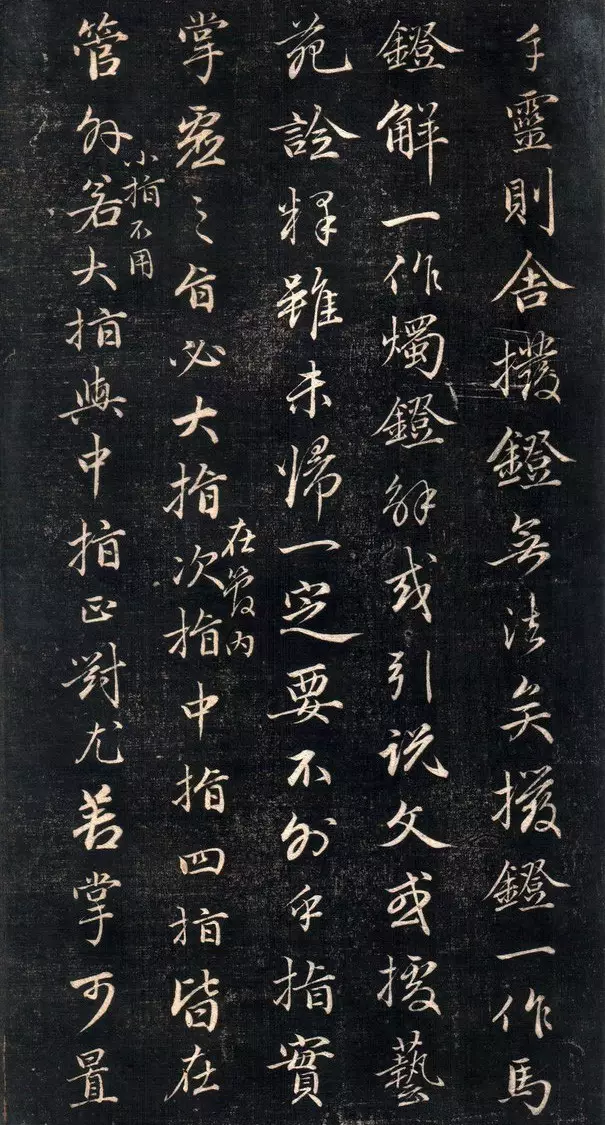 手靈則舍撥鐙無法矣撥鐙一作馬
鐙解一作燭鐙解或引説文或援藝
苑詮釋雖未歸一定要不外乎指實
在管内
掌虛之旨必大指次指中指四指皆在
小指不用
管外若大指與中指正對尤掌可置